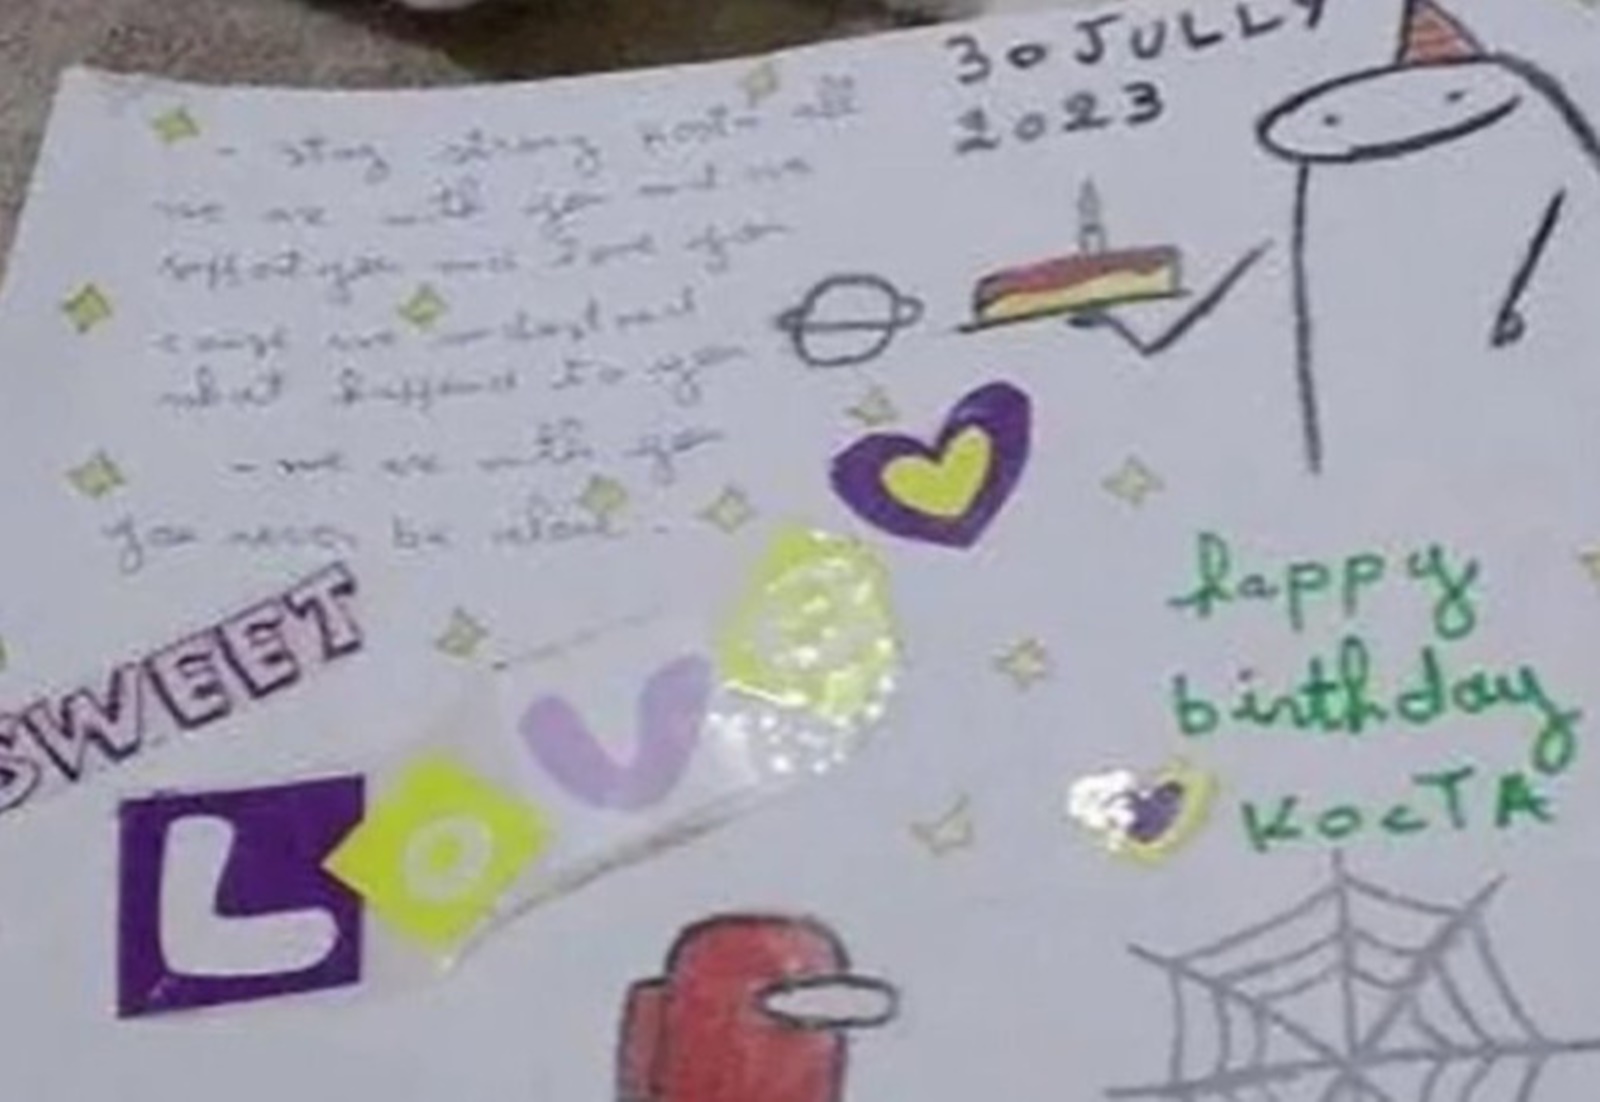 30 JULLY
2023
- stay strong Kost- all
we are with you and we
support you and love you
cause we understand
what happend to you
- we are with you
you never be alone -
SWEET
LOVE
happy
birthday
KocTA